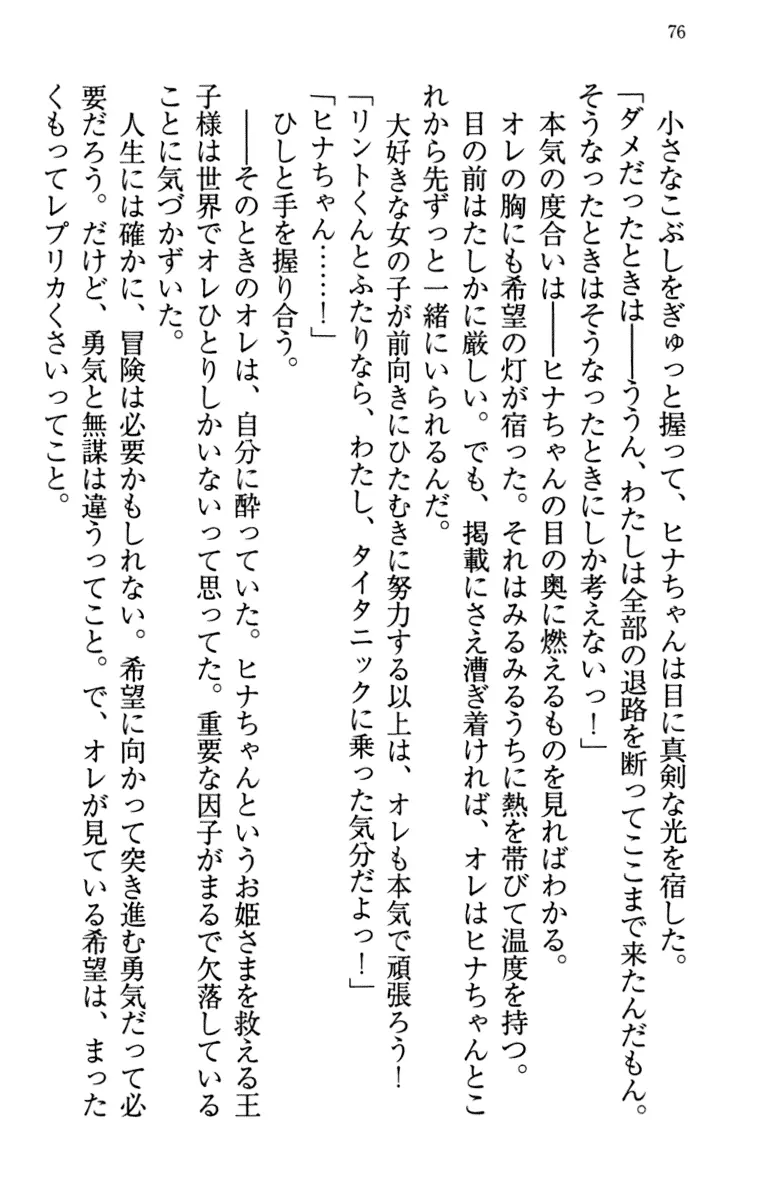 76
小さなこぶしをぎゅっと握って、ヒナちゃんは目に真剣な光を宿した。
「ダメだったときは――ううん、わたしは全部の退路を断ってここまで来たんだもん。
そうなったときはそうなったときにしか考えないっ！」
本気の度合いは――ヒナちゃんの目の奥に燃えるものを見ればわかる。
オレの胸にも希望の灯が宿った。それはみるみるうちに熱を帯びて温度を持つ。
目の前はたしかに厳しい。でも、掲載にさえ漕ぎ着ければ、オレはヒナちゃんとこ
れから先ずっと一緒にいられるんだ。
大好きな女の子が前向きにひたむきに努力する以上は、オレも本気で頑張ろう！
「リントくんとふたりなら、わたし、タイタニックに乗った気分だよっ！」
「ヒナちゃん……！」
ひしと手を握り合う。
――そのときのオレは、自分に酔っていた。ヒナちゃんというお姫さまを救える王
子様は世界でオレひとりしかいないって思ってた。重要な因子がまるで欠落している
ことに気づかずいた。
人生には確かに、冒険は必要かもしれない。希望に向かって突き進む勇気だって必
要だろう。だけど、勇気と無謀は違うってこと。で、オレが見ている希望は、まった
くもってレプリカくさいってこと。